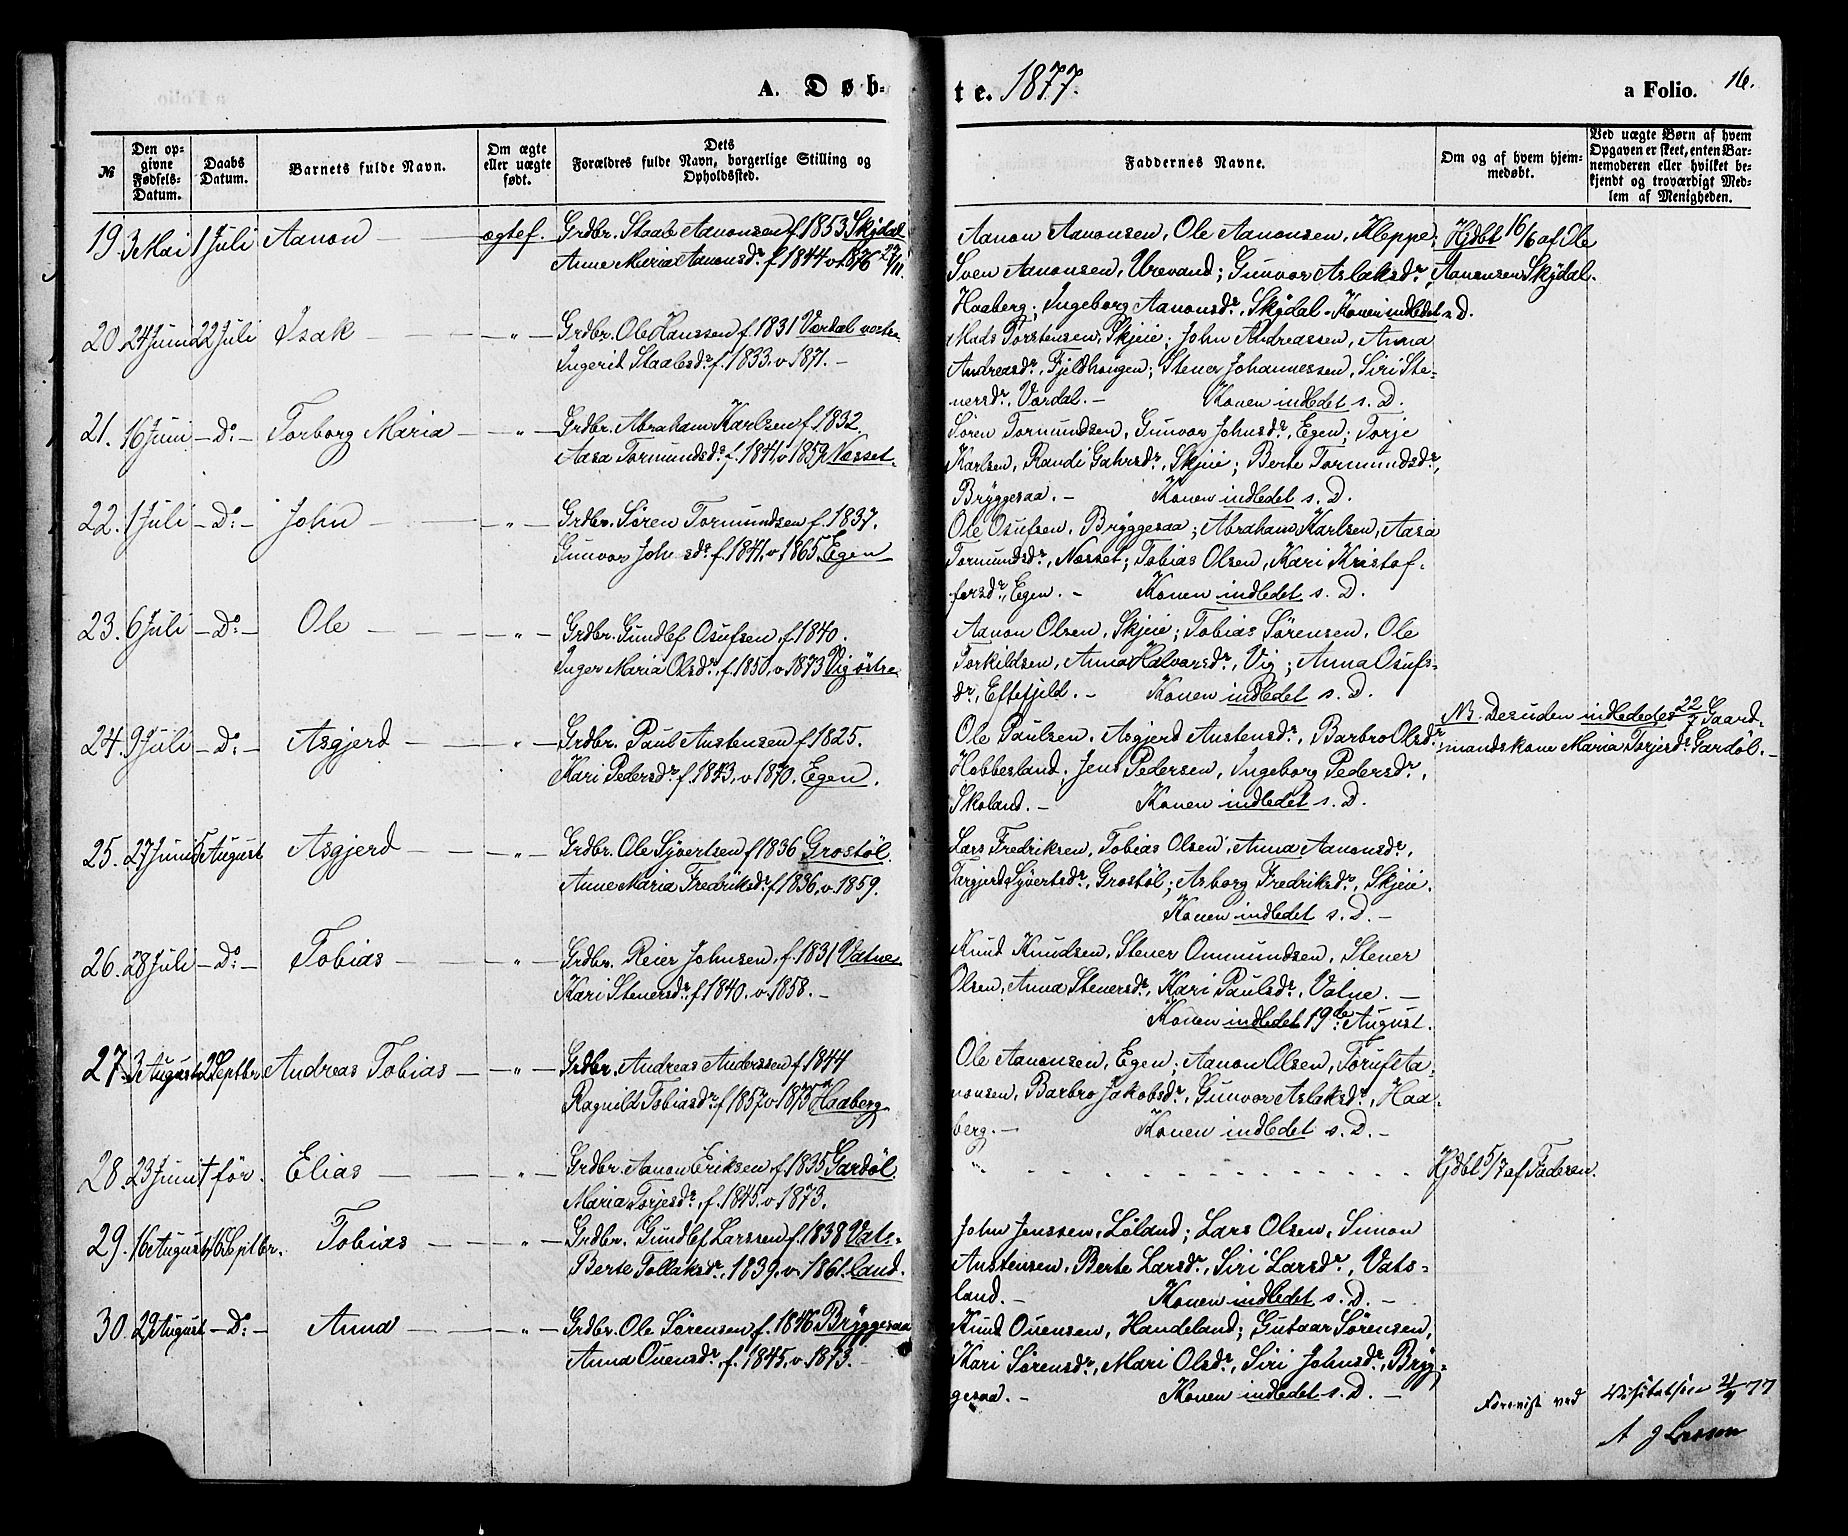 A. Døb-
te. 1877.
a Folio. 16.
№
Den op-
givne
Fødsels-
Datum.
Daabs
Datum.
Barnets fulde Navn.
Om ægte
eller uægte
født.
Dets
Forældres fulde Navn, borgerlige Stilling og
Opholdssted.
Faddernes Navne.
Om og af hvem hjem-
medøbt.
Ved uægte Børn af hvem
Opgaven er skeet, enten Bar-
nemoderen eller hvilket be-
kjendt og troværdigt Med-
lem af Menigheden.
19. 3 Mai 1 Juli Aanon — ægtef. Grdbr. Staale Aanonsen f. 1853 Skjdal
Anne Maria Aanonsdr. f. 1844 v. 1876 27/11.
Aanon Aanonsen, Ole Aanonsen, Kleppe; Hjdbt 16/6 af Ole
Sven Aanonsen, Urevand; Gunvor Aslaksdr., Aanonsen Skjdal.
Haaberg; Ingeborg Aanonsdr., Skjdal. Konen indledet s. D.
20. 24 Juni 22 Juli Isak — " — Grdbr. Ole Hanssen f. 1831 Vordal vestre
Ingerit Staalesdr. f. 1833. v. 1871. —
Mads Torstensen, Skjeie; John Andreassen, Anna
Andreasdr., Fjeldhougen; Stener Johannessen, Siri Ste-
nersdr., Vordal. — Konen indledet s. D.
21. 16 Juni — Do: — Torborg Maria — " — Grdbr. Abraham Karlsen f. 1832.
Aasa Tormundsdr. f. 1841. v. 1859 Nesset.
Sören Tormundsen, Gunvor Johnsdr., Egen; Torje
Karlsen, Randi Gahrsdr., Skjeie; Berte Tormundsdr.,
Bryggesaa. — Konen indledet s. D.
22. 1 Juli — Do: — John — " — Grdbr. Sören Tormundsen f. 1837.
Gunvor Joh sdr. f. 1841. v. 1865. Egen
Ole Osufsen, Bryggesaa; Abraham Karlsen, Aasa
Tormundsdr., Nesset; Tobias Olsen, Kari Kristof-
fersdr., Egen. — Konen indledet s. D.
23. 6 Juli — Do: — Ole — " — Grdbr. Gundlef Osufsen f. 1840.
Inger Maria Olsdr., f. 1850, v. 1873 Vig østre
Aanon Olsen, Skjeie; Tobias Sörensen, Ole
Torkildsen, Anna Halvorsdr., Vig; Anna Osufs-
dr., Eftefjeld. — Konen indledet s. D.
24. 9 Juli — Do: — Asgjerd — " — Grdbr. Paul Austensen f. 1825.
Kari Pedersdr. f. 1843, v. 1870. Egen.
Ole Paulsen, Asgjerd Austensdr., Barbro Olsdr.
Hobbesland; Jens Pedersen, Ingeborg Pedersdr.,
Skoland. — Konen indledet s. D.
NB. Desuden indlededes 22/7 Gaard-
mandskone Maria Torjesdr. Gardöl. —
25. 27 Juni 5 August Asgjerd — " — Grdbr. Ole Syvertsen f. 1836 Grostöl.
Anne Maria Fredriksdr. f. 1836, v. 1859.
Lars Fredriksen, Tobias Olsen, Anna Aanonsdr.,
Targjerd Syvertsdr., Grostöl; Asborg Fredriksdr., Skjeie.
Konen indledet s. D. —
26. 28 Juli — Do: — Tobias — " — Grdbr. Reier Johnsen, f. 1831 Vatne
Kari Stenersdr. f. 1840. v. 1858. —
Knud Knudsen, Stener Ommundsen, Stener
Olsen, Anna Stenersdr., Kari Paulsdr., Vatne. —
Konen indledet 19de August.
27. 3 August 2 Septbr. Andreas Tobias — " — Grdbr. Andreas Anderssen f. 1844
Ragnild Tobiasdr. f. 1857 v. 1875 Haaberg
Ole Aanonsen, Egen; Aanon Olsen, Torjuf Aa-
nonsen, Barbro Jakobsdr., Gunvor Aslaksdr., Haa-
berg. — Konen indledet s. D. —
28. 23 Juni † för. Elias — " — Grdbr. Aanon Eriksen f. 1835 Gardöl.
Maria Torjesdr., f. 1845. v. 1873.
" - - - Hjdbt 5/7 af Faderen.
29. 16 August 16 Septbr. Tobias — " — Grdbr. Gundlef Larssen f. 1838 Vats-
Berte Tollaksdr., 1839. v. 1861. land.
John Jenssen, Löland; Lars Olsen, Simon
Austensen, Berte Larsdr., Siri Larsdr., Vats-
land. — Konen indledet s. D. —
30. 29 August — Do: — Anna — " — Grdbr. Ole Sörensen f. 1846 Bryggesaa
Anna Ouensdr., f. 1845. v. 1873. —
Knud Ouensen, Handeland; Gutaar Sörensen,
Kari Sörensdr., Mari Olsdr., Siri Johnsdr., Bryg-
gesaa. — Konen indledet s. D. —
Forevist ved Visitatsen 21/9 77
A J Larsen